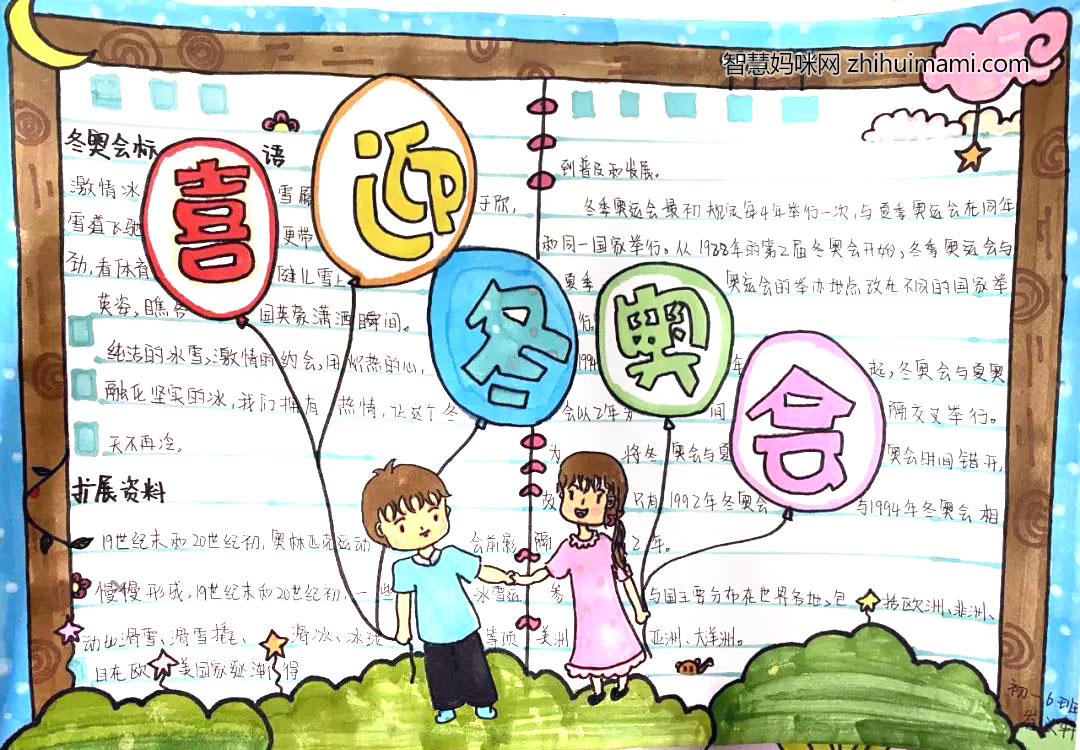 智慧妈咪网 zhihuimami.com
喜迎冬奥会
冬奥会标语
激情冰 雪 于欣,
雪道飞驰 更带
劲,看体育 健儿雪上
英姿,瞧 国英豪潇洒瞬间。
纯洁的冰雪,激情的约会,用炽热的心,
融化坚实的冰,我们拥有 热情,让这个冬
天不再冷。
扩展资料
19世纪末和20世纪初,奥林匹克运动 会前影
慢慢形成,19世纪末和20世纪初,一些 冰雪运
动如滑雪、滑雪橇、 滑冰、冰 等项
目在欧 美国家逐渐 得
到普及和发展。
冬季奥运会最初规定每4年举行一次,与夏季奥运会在同年
和同一国家举行。从1988年的第 届冬奥会开始,冬季奥运会与
夏季 奥运会的举办地点改在不同的国家举
行。
1994 年 起,冬奥会与夏奥
会以2年为 间 隔交叉举行。
为 将冬奥会与夏 奥会时间错开,
故 只有1992年冬奥会 与1994年冬奥会相
隔 2年。
参 与国主要分布在世界各地,包 括欧洲、非洲、
美洲 亚洲、大洋洲。
初一6班